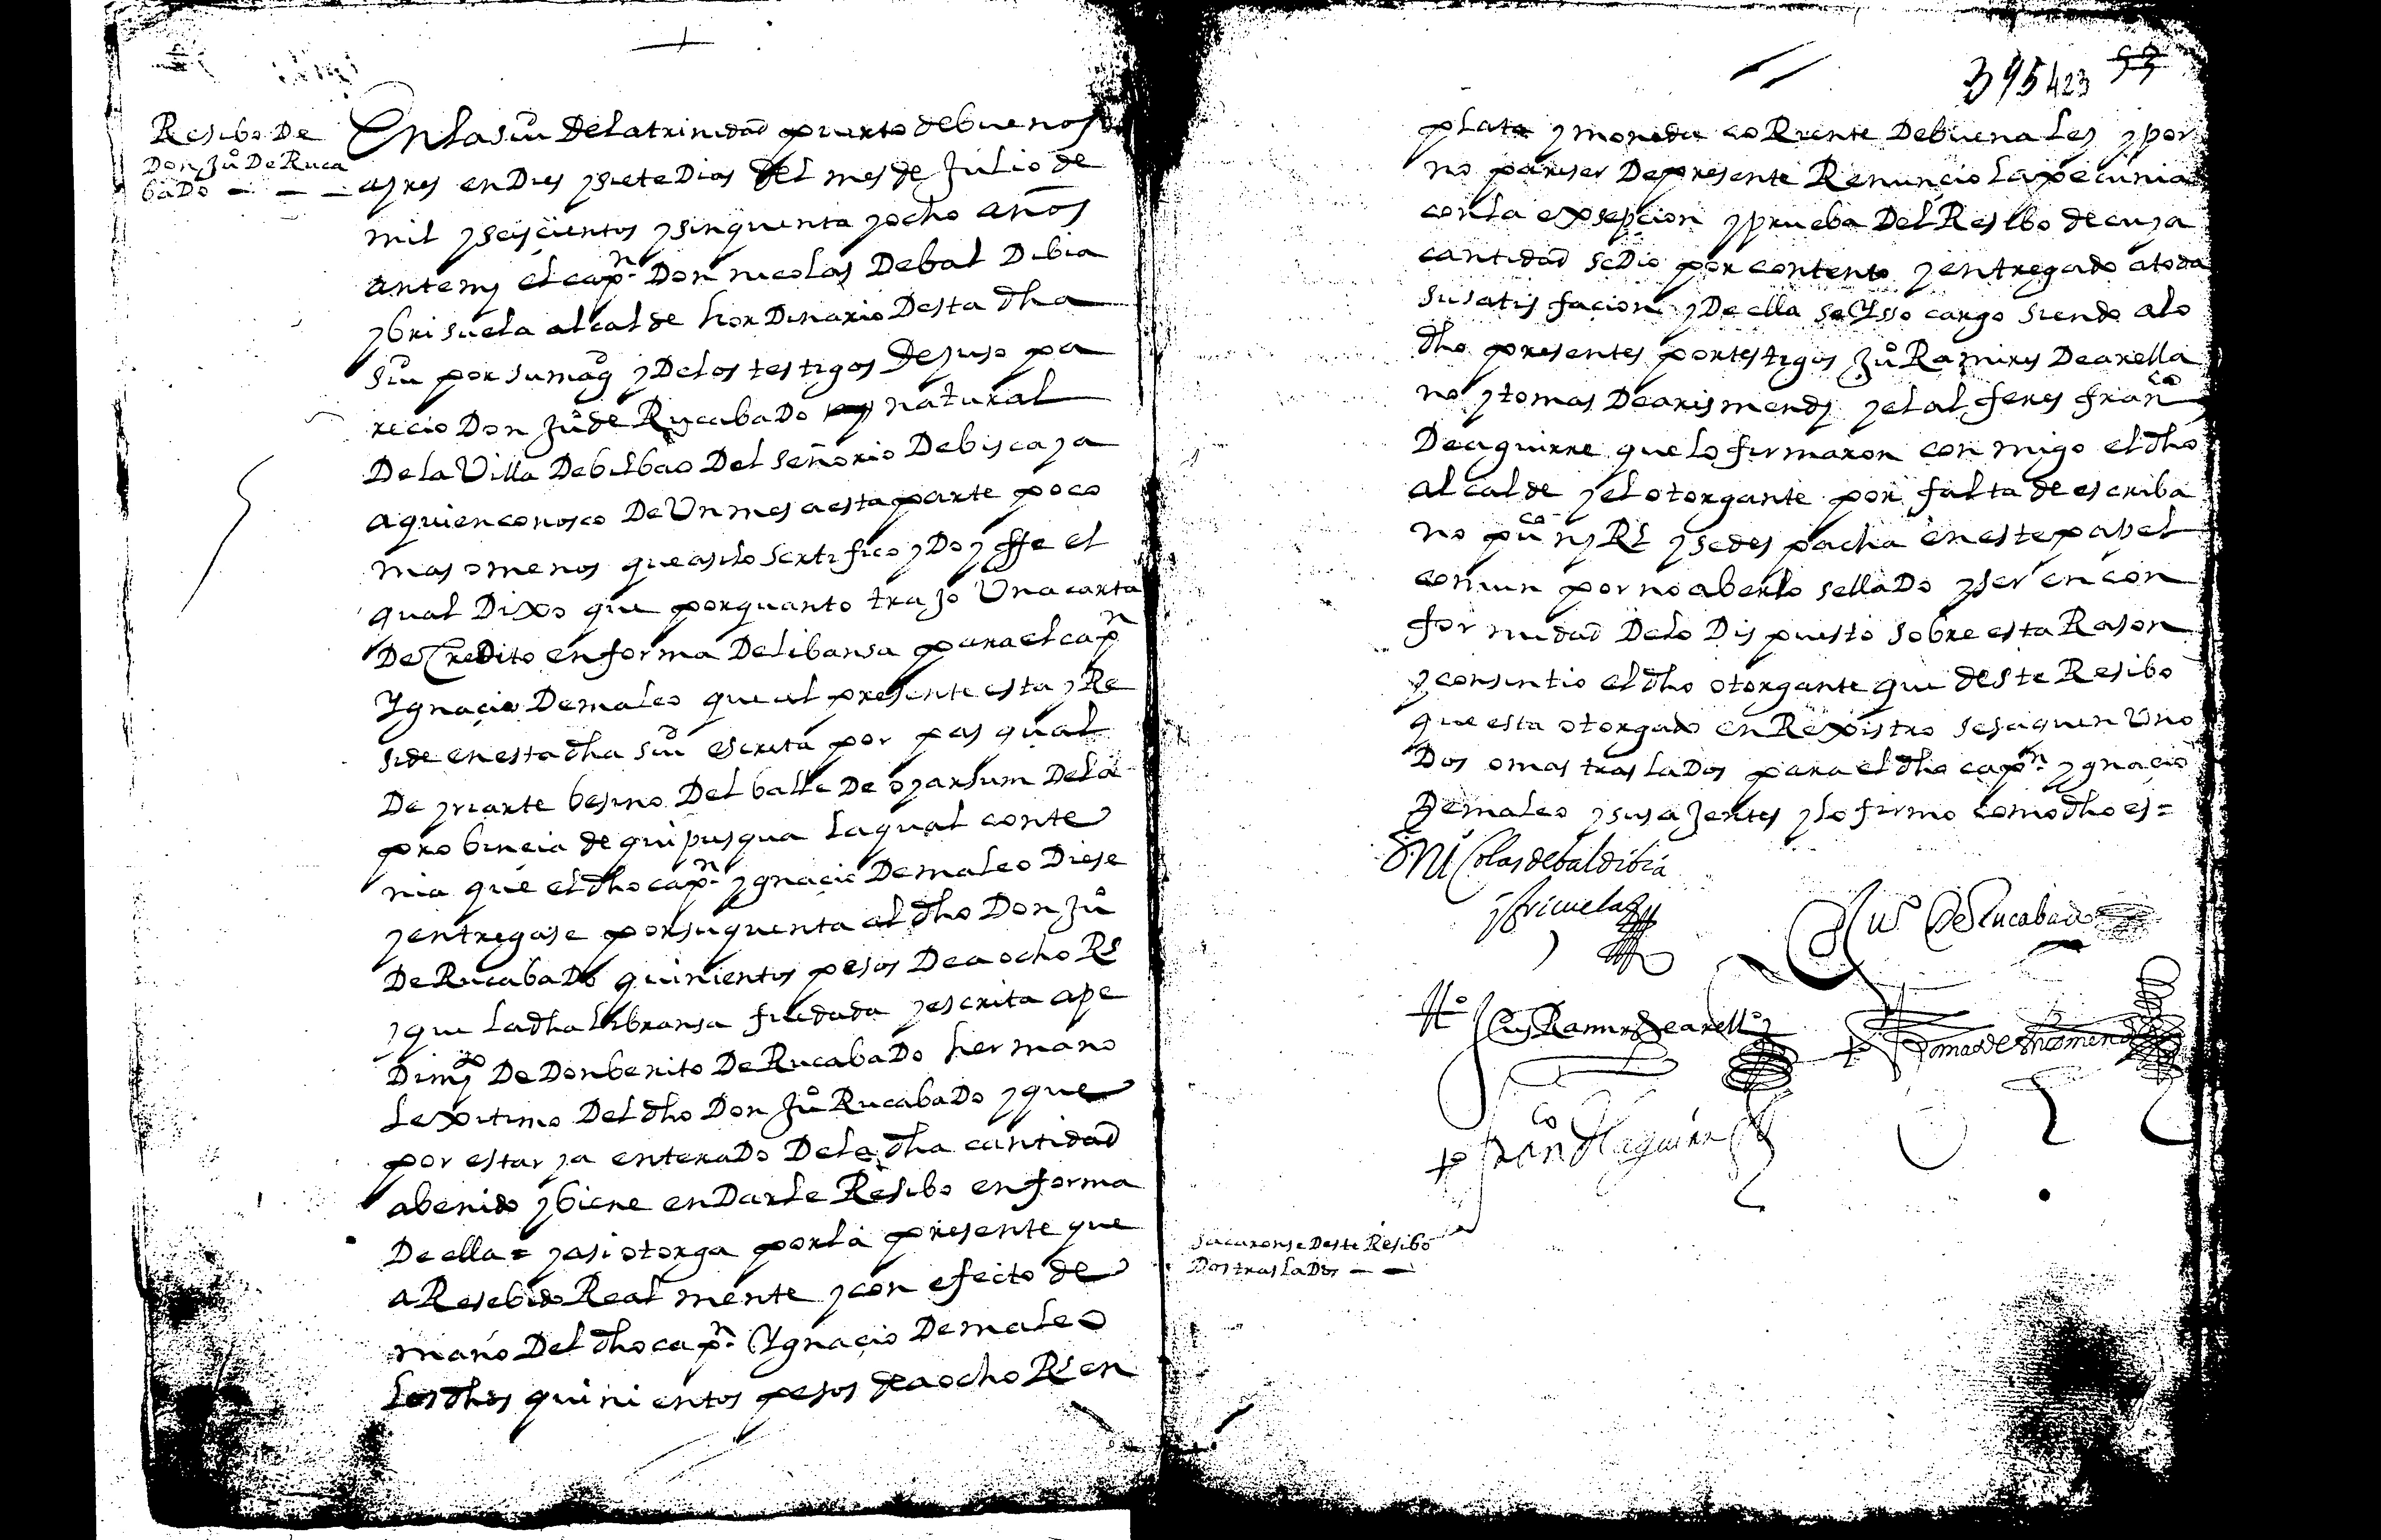 Resibo De
Don Juº De Ruca
baDo — — —
En la siu De la trinidad puerto de buenos
ayres en Dies y siete Dias Del mes de Julio de
mil y seiscientos y sinquenta y ocho años
ante my el capn. Don nicolas De bal Dibia
y brisuela alcalde hor Dinario Desta dha
siu por su magd y De los testigos De yuso pa
recio Don Juº de RucabaDo natural
De la Villa De bilbao Del señorio De biscaya
a quien conosco De Un mes a esta parte poco
mas o menos que asi lo sertifico y Doy ffe el
qual Dixo que por quanto trajo Una carta
De Credito en forma De libransa para el capn
Ygnacio De maleo que al presente esta y Re
side en esta dha siu escrita por pasqual
De yriarte besino Del balle De oyarsum De la
probincia de guipusqua la qual conte
nia que el dho capn. ygnacio De maleo Diese
y entregase por su quenta al dho Don Juº
De RucabaDo quinientos pesos De a ocho Rs
y que la dha libransa fue dada y escrita a pe
Dimyto De Don benito De RucabaDo hermano
lexitimo Del dho Don Juº RucabaDo y que
por estar ya enteraDo De la dha cantidad
a benido y biene en Darle Resibo en forma
De ella = y asi otorga por la presente que
a Resebido Real mente y con efecto de
mano Del dho capn. Ygnacio De maleo
los dhos quinientos pesos de a ocho Rs en
395 423 53
plata y moneda coRriente De buena ley y por
no pareser De presente Renuncio la pecunia
con la exsepcion y prueba Del Resibo de cuya
cantidad se Dio por contento y entregado a toda
su satisfacion y De ella se Ysso cargo siendo a lo
dho presentes por testigos Juº Ramires De arella
no y tomas De arismendy y el alferes franco
De aguirre que lo firmaron con migo el dho
alcalde y el otorgante por falta de escriba
no puco ny Rl y se despacha en este papel
comun por no aberlo sellaDo y ser en con
formidad De lo Dispuesto sobre esta Rason
y consintio el dho otorgante que deste Resibo
que esta otorgado en Rexistro se saquen Uno
Dos o mas traslaDos para el dho capn. ygnacio
De maleo y sus ajentes y lo firmo como dho es =
D. Nicolas de baldibia
y brisuela
Juº De Rucabado
tº Luys Ramires de arellº
tº Tomas de Arismendi
tº franco de aguirre
sacaronse Deste Resibo
Dos traslaDos — —